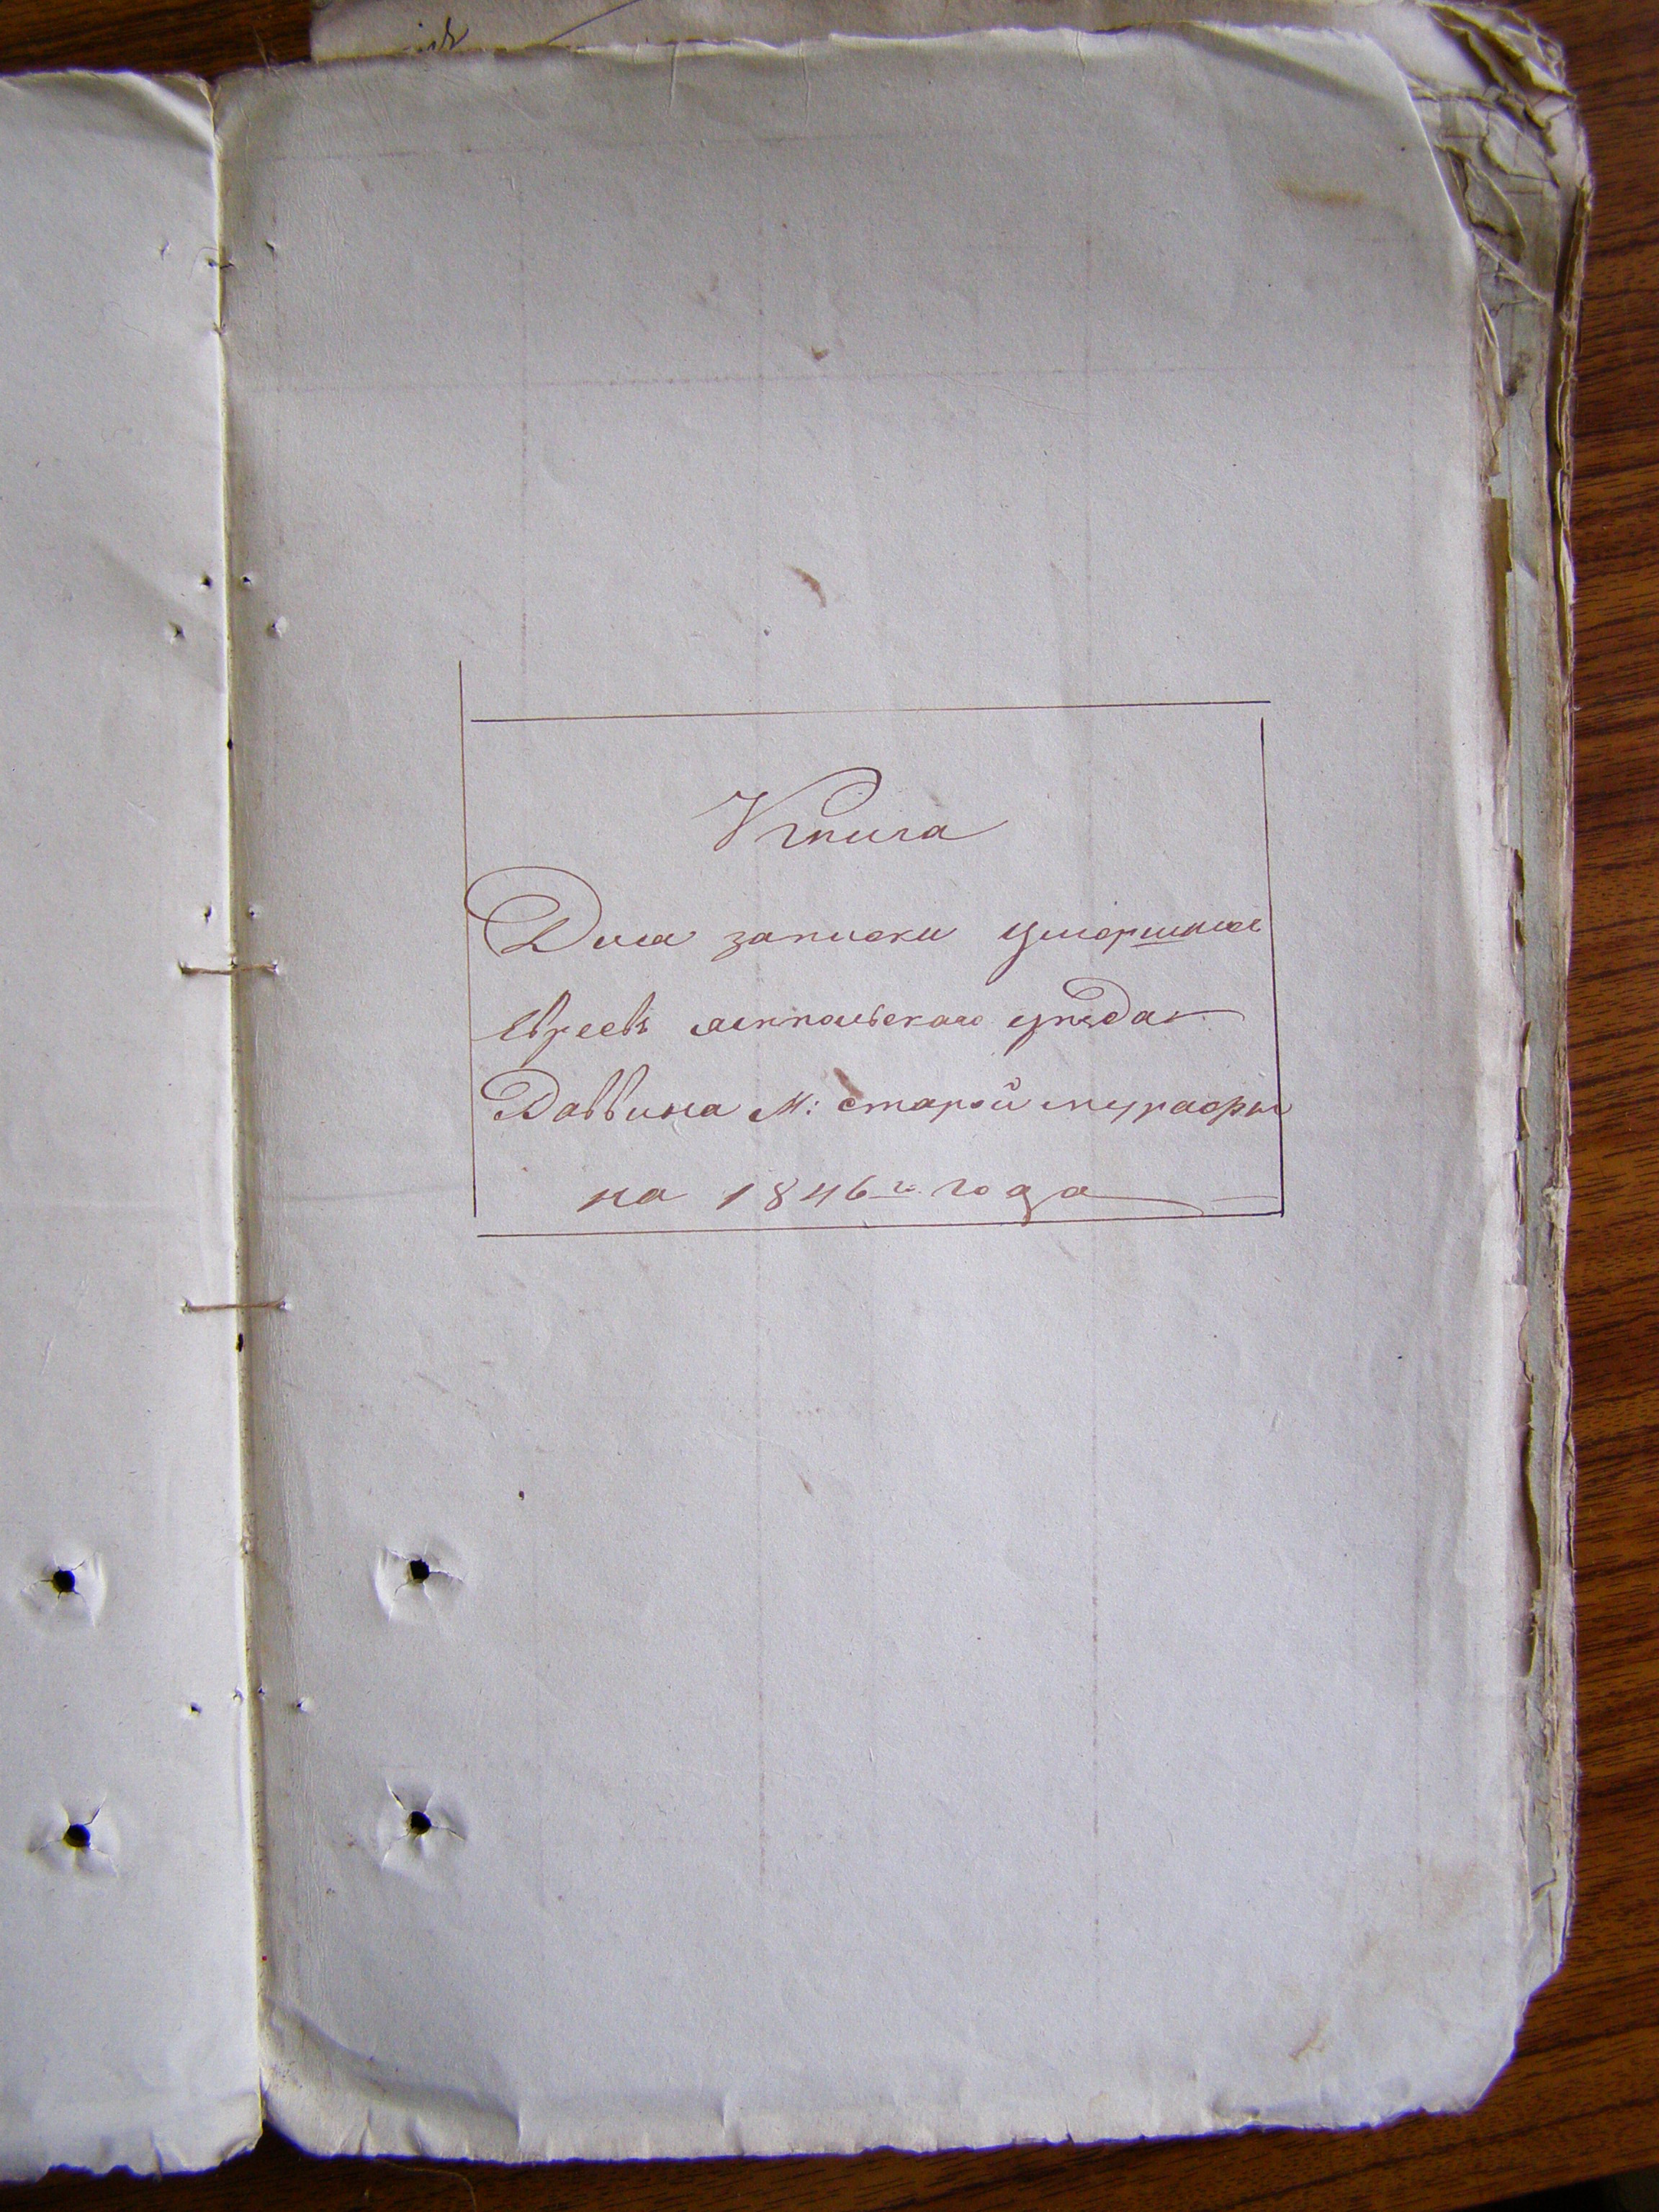 Книга
Для записки умершихъ
Евреевъ Ямпольскаго уѣзда
Раввина М: Старой Мурафы
на 1846го года